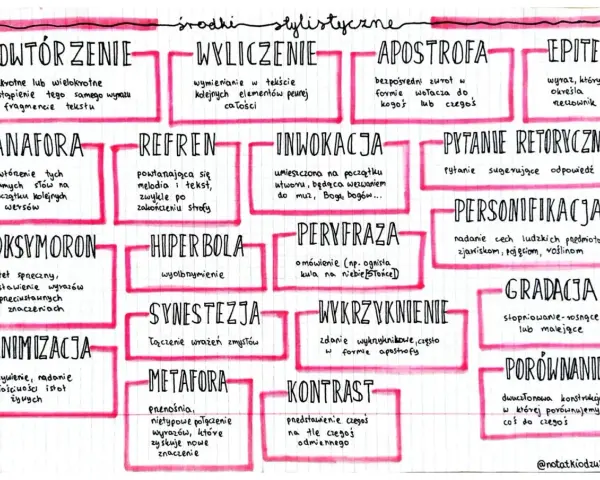 środki stylistyczne
OWTÓRZENIE
krotne lub wielokrotne
stąpienie tego samego wyrazu
fragmencie tekstu
WYLICZENIE
wymienianie w tekście
kolejnych elementów pewnej
całości
APOSTROFA
bezpośredni zwrot w
formie wołacza do
kogoś lub czegoś
EPITE
wyraz, który
określa
rzeczownik
ANAFORA
tórzenie tych
mych słów na
czątku kolejnych
wersów
REFREN
powtarzająca się
melodia i tekst,
zwykle po
zakończeniu strofy
INWOKACJA
umieszczona na początku
utworu, będąca wezwaniem
do muz, Boga, bogów...
PYTANIE RETORYCZN
pytanie sugerujące odpowiedź
OKSYMORON
tet sprzeczny,
stawienie wyrazów
przeciwstawnych
znaczeniach
HIPERBOLA
wyolbrzymienie
PERYFRAZA
omówienie (np. ognista
kula na niebie[SŁOŃCE])
PERSONIFIKACJA
nadanie cech ludzkich przedmioto
zjawiskom, pojęciom, roślinom
SYNESTEZJA
łączenie wrażeń zmysłów
WYKRZYKNIENIE
zdanie wykrzyknikowe, często
w formie apostrofy
GRADACJA
stopniowanie-rosnące
lub malejące
NIMIZACJA
żywienie, nadanie
ściwości istot
żywych
METAFORA
przenośnia,
nietypowe połączenie
wyrazów, które
zyskuje nowe
znaczenie
KONTRAST
przedstawienie czegoś
na tle czegoś
odmiennego
PORÓWNANIE
dwuczłonowa konstrukcja
w której porównujemy
coś do czegoś
@notatkiodzu